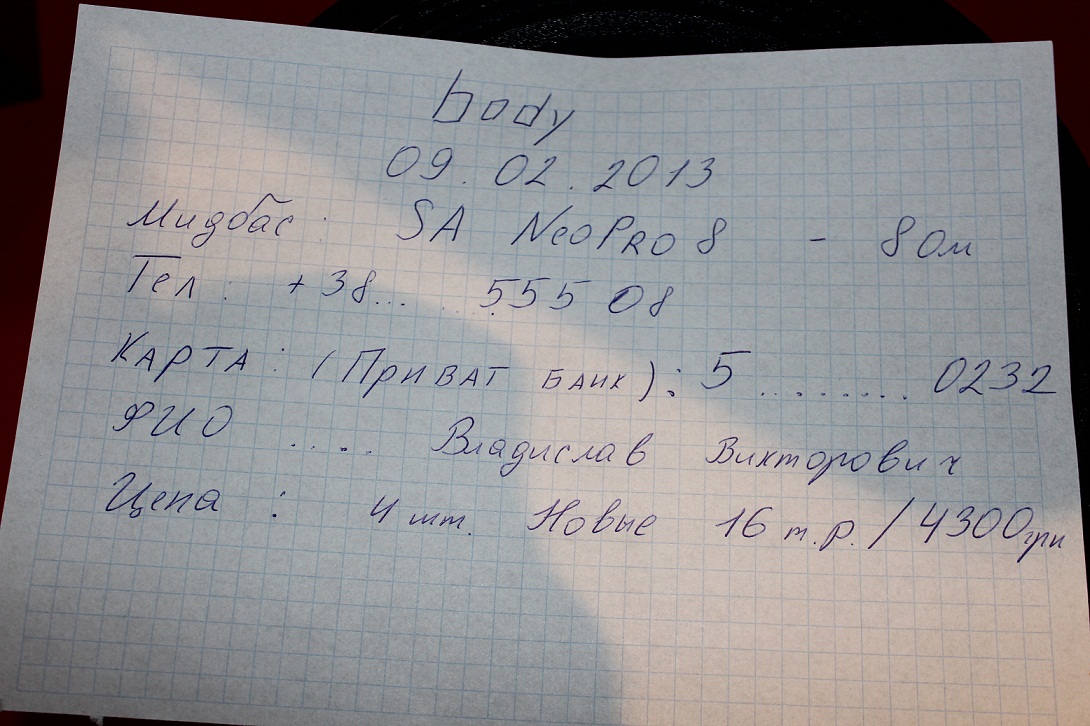 body
09.02.2013
Мидбас: SA NeoPRO 8 - 8 Ом
Тел: +38... ...555 08
КАРТА: (ПРИВАТ БАНК): 5......... 0232
ФИО .... Владислав Викторович
Цена: 4 шт. Новые 16 т.р./4300грн